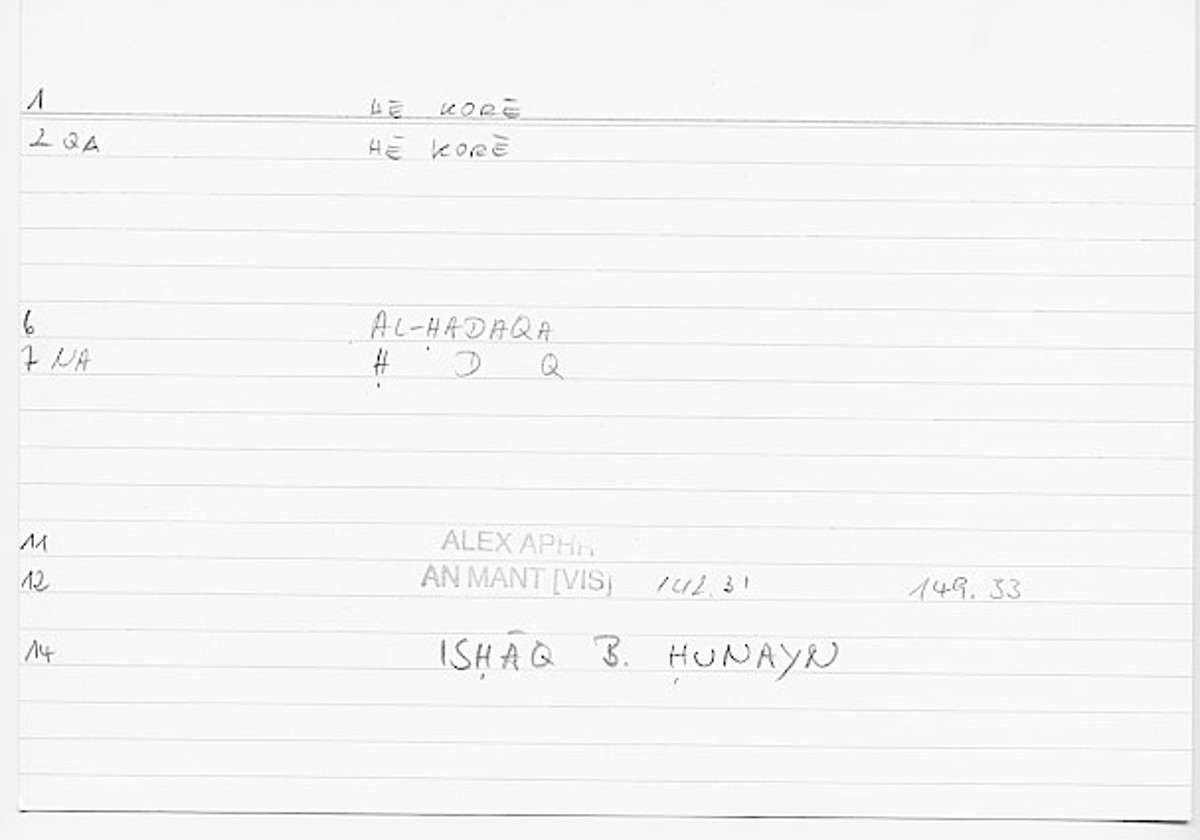 1 HE KORĒ
2 QA HĒ KORĒ
6 AL-ḤADAQA
7 NA Ḥ D Q
11 ALEX APHR
12 AN MANT [VIS] 142.31 149.33
14 ISḤĀQ B. ḤUNAYN